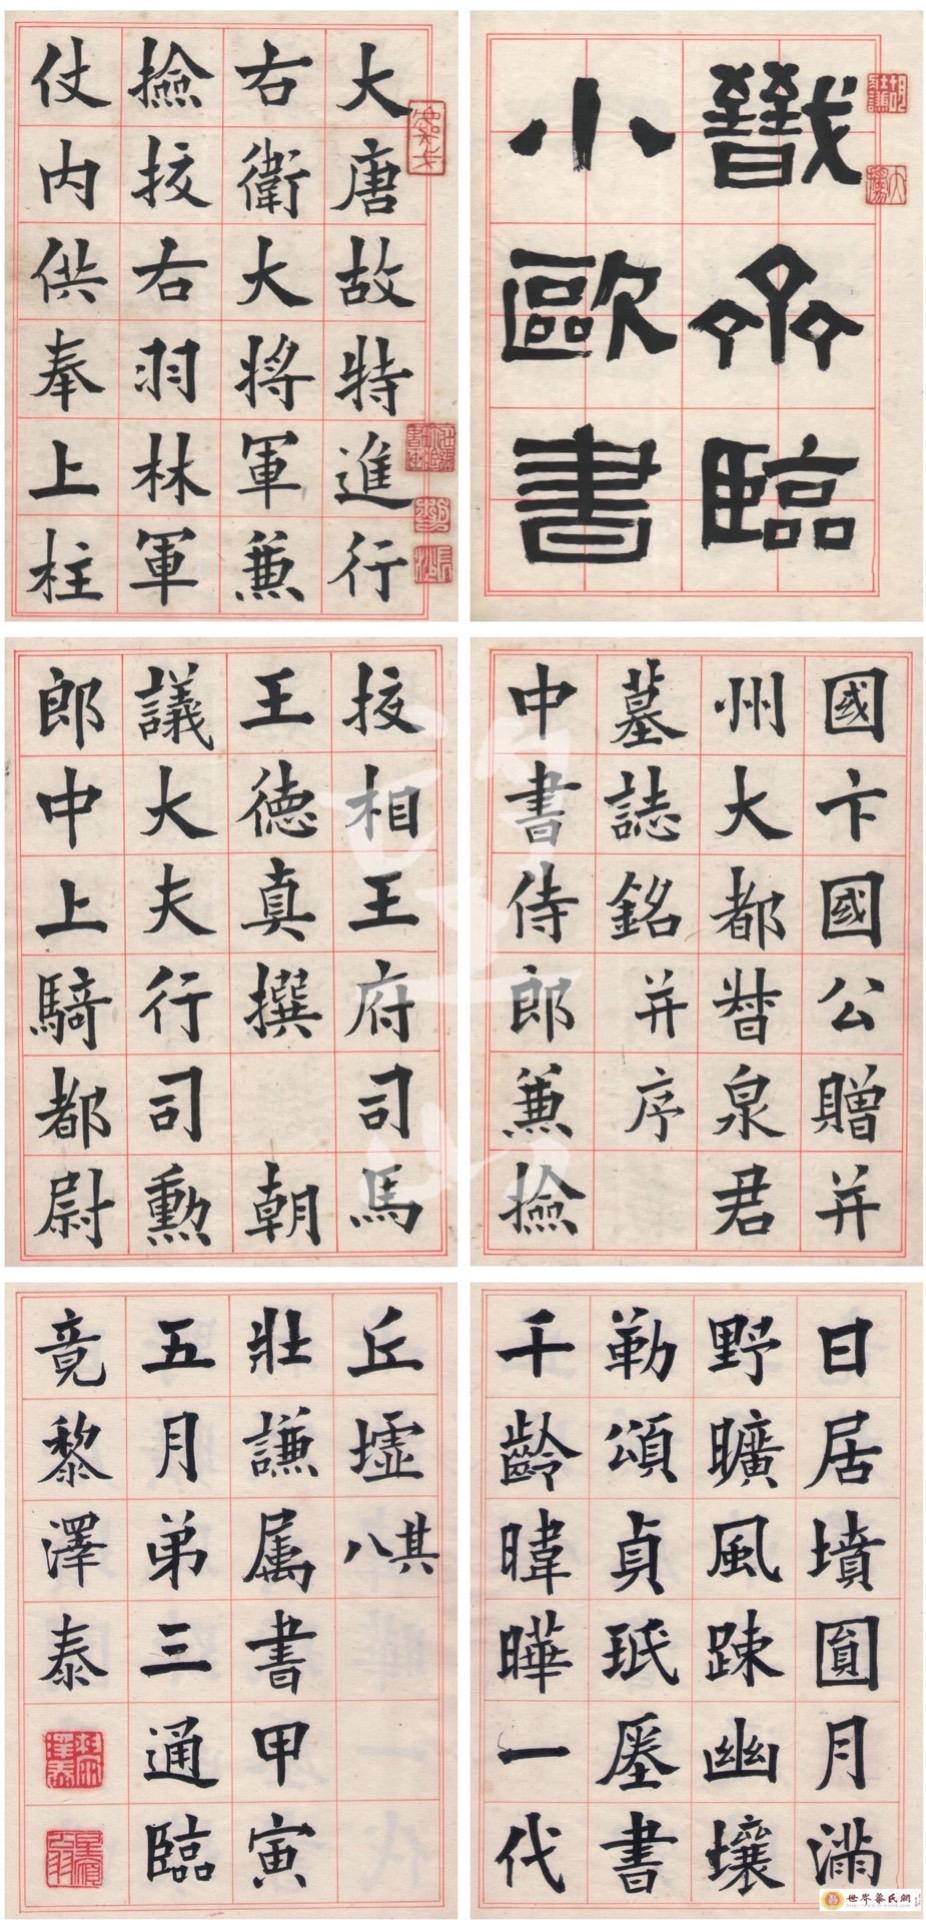 戩㒰臨
小歐書
大唐故特進行
右衛大將軍兼
撿挍右羽林軍
仗內供奉上柱
國卞國公贈并
州大都督泉君
墓誌銘并序
中書侍郎兼撿
挍相王府司馬
王德真撰 朝
議大夫行司勳
郎中上騎都尉
日居墳圓月滿
野曠風踈幽壤
勒頌貞珉壓書
千齡暐曄一代
丘墟其八
壯謙属書甲寅
五月弟三通臨
竟黎澤泰
望山
世岑黎氏網